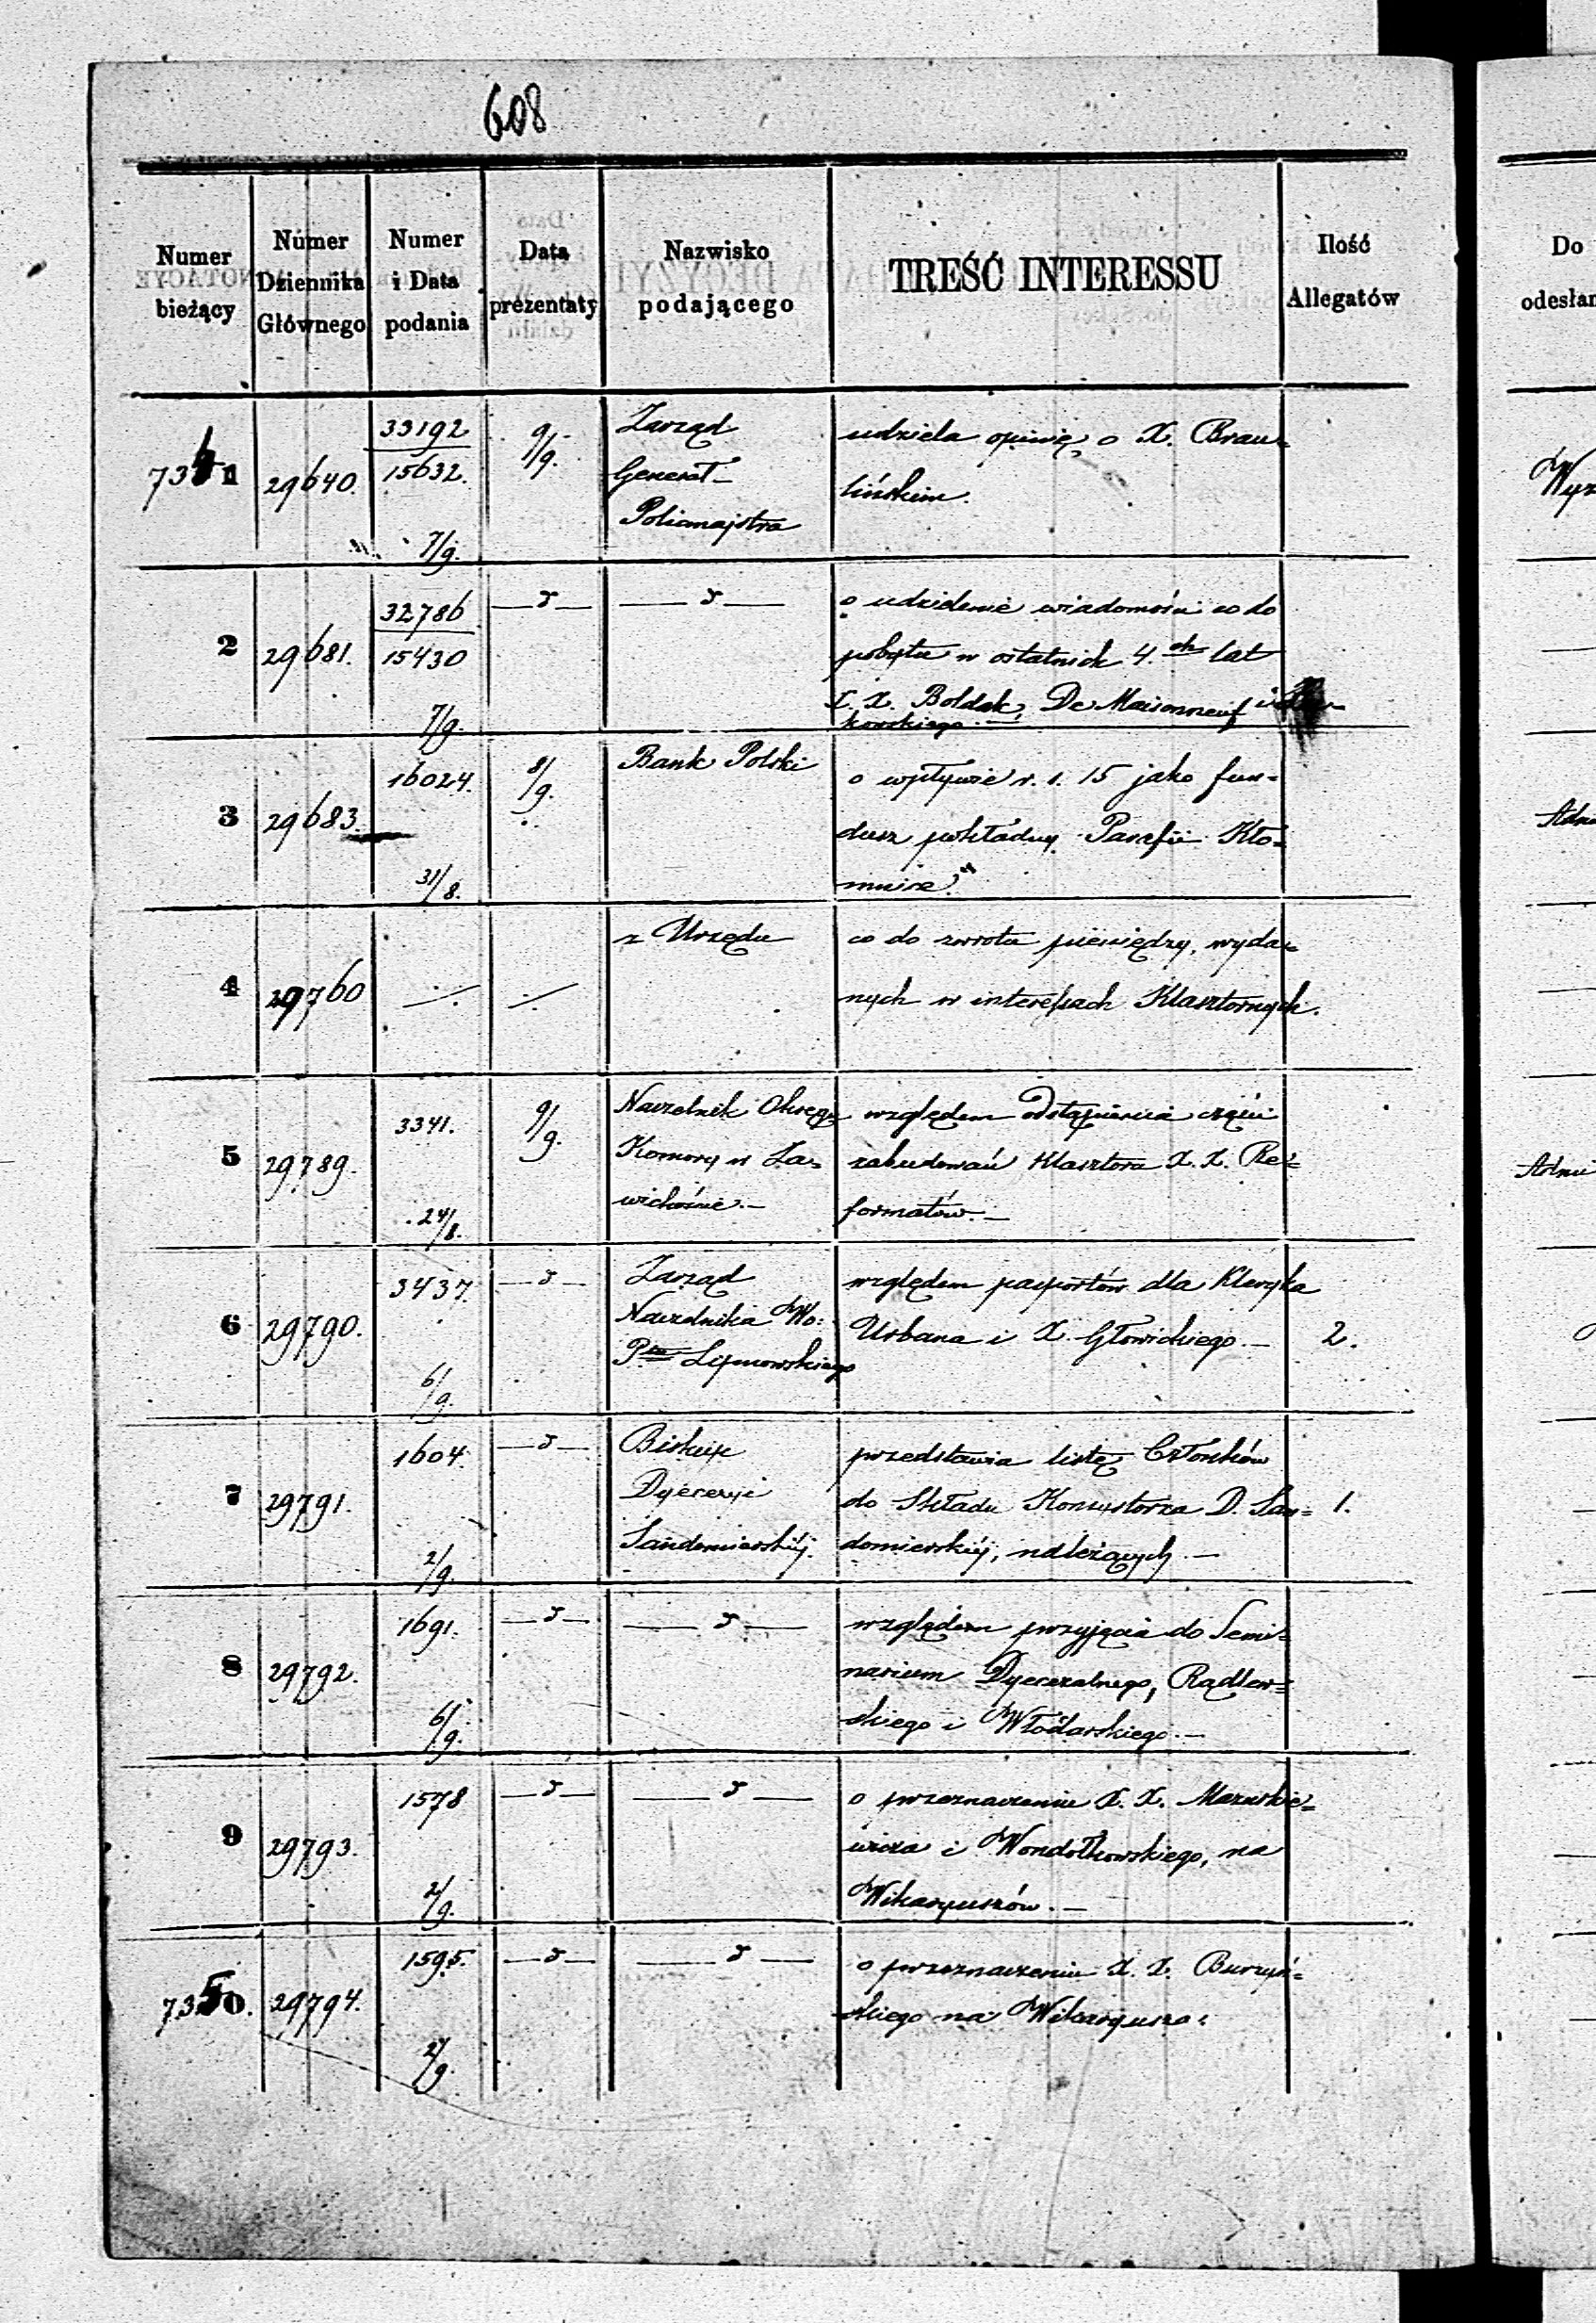 608
Numer bieżący
Numer Dziennika Głównego
Numer i Data podania
Data prezentaty
Nazwisko podającego
TREŚĆ INTERESSU
Ilość Allegatów
Do
odesłan
7341
29640.
33192
15632.
7/9.
9/9.
Zarząd
Generał-
Policmajstra
udziela opinię o X. Brau=
lińskim.
Wyz
2
29681.
32786
15430
7/9.
— d —
— d —
o udzielenie wiadomości co do
pobytu w ostatnich 4.ch lat
X. X. Boldok, De Maisonneuf i
kowskiego. —
3
29683.
16024.
31/8.
8/9.
Bank Polski
o wpływie r. s. 15 jako fun=
dusz pokładny Parafii Kło=
mnice.
Adm
4
29760
z Urzędu
co do zwrotu pieniędzy, wyda=
nych w interesach Klasztornych.
5
29789.
3341.
24/8.
9/9.
Naczelnik Okręgu
Komory w Za=
wichoście. —
względem odstąpienia części
zabudowań klasztora X. X. Re=
formatów. —
Adm
6
29790.
3437.
6/9.
— d —
Zarząd
Naczelnika Wo:
Ptu Lipnowskiego
względem pasportów dla Kleryka
Urbana i X. Głowickiego. —
2.
7
29791.
1604.
2/9.
— d —
Biskup
Dyecezyi
Sandomierskiéj.
przedstawia listę Członków
do Składu Konsystorza D. San=
domierskiéj, należących. —
1.
8
29792.
1691.
6/9.
— d —
— d —
względem przyjęcia do Semi=
narium Dyecezalnego, Rądlew=
skiego i Włodarskiego. —
9
29793.
1578
2/9.
— d —
— d —
o przeznaczeniu X. X. Mazurkie=
wicza i Wondołkowskiego, na
Wikaryuszów. —
7350.
29794.
1595.
2/9.
— d —
— d —
o przeznaczeniu X. X. Burzyń=
skiego na Wikaryusza.